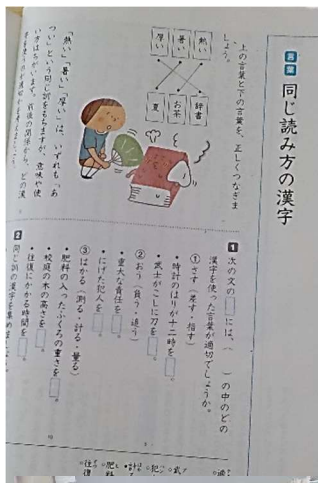 言葉
同じ読み方の漢字
上の言葉と下の言葉を、正しくつなぎま
しょう。
熱い
暑い
厚い
辞書
お茶
夏
「熱い」「暑い」「厚い」は、いずれも「あ
つい」という同じ訓をもちますが、意味や使
い方はちがいます。前後の関係から、どの漢
1 次の文の□には、（　）の中のどの
漢字を使った言葉が適切でしょうか。
① さす（差す・指す）
・時計のはりが十二時を□。
・武士がこしに刀を□。
② おう（負う・追う）
・重大な責任を□。
・にげた犯人を□。
③ はかる（測る・計る・量る）
・肥料の入ったふくろの重さを□。
・校庭の木の高さを□。
・往復にかかる時間を□。
2 同じ訓の漢字を集めましょう。